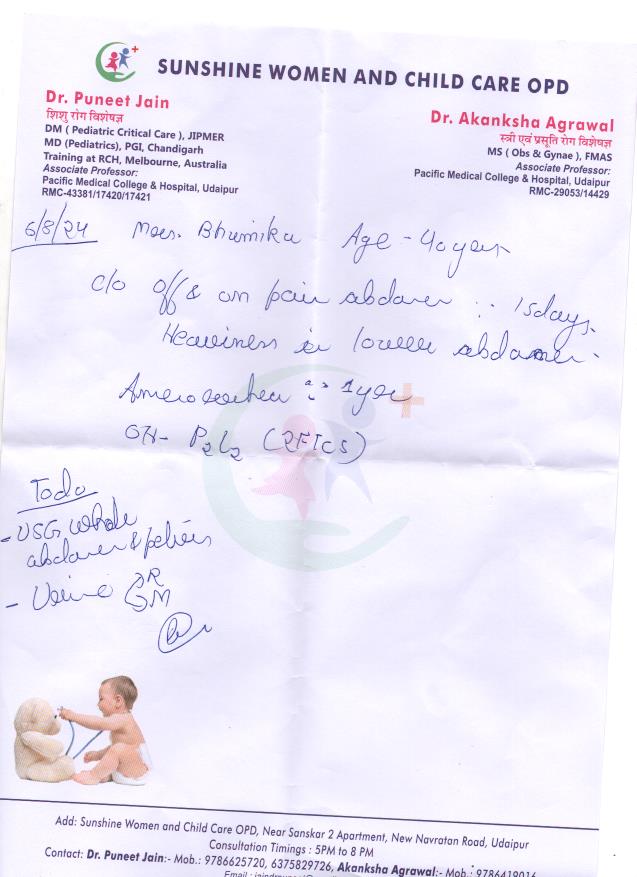 SUNSHINE WOMEN AND CHILD CARE OPD
Dr. Puneet Jain
शिशु रोग विशेषज्ञ
DM ( Pediatric Critical Care ), JIPMER
MD (Pediatrics), PGI, Chandigarh
Training at RCH, Melbourne, Australia
Associate Professor:
Pacific Medical College & Hospital, Udaipur
RMC-43381/17420/17421
Dr. Akanksha Agrawal
स्त्री एवं प्रसूति रोग विशेषज्ञ
MS ( Obs & Gynae ), FMAS
Associate Professor:
Pacific Medical College & Hospital, Udaipur
RMC-29053/14429
6/8/24 Mrs. Bhumika Age - 40 year
c/o off & on pain abdomen :: 15days.
Heaviness in lower abdomen.
Amenorrhea :: 1 year
OH- P2L2 (2FTCS)
Todo
- USG whole
abdomen & pelvis
- Urine R
M
Add: Sunshine Women and Child Care OPD, Near Sanskar 2 Apartment, New Navratan Road, Udaipur
Consultation Timings : 5PM to 8 PM
Contact: Dr. Puneet Jain:- Mob.: 9786625720, 6375829726, Akanksha Agrawal:- Mob.: